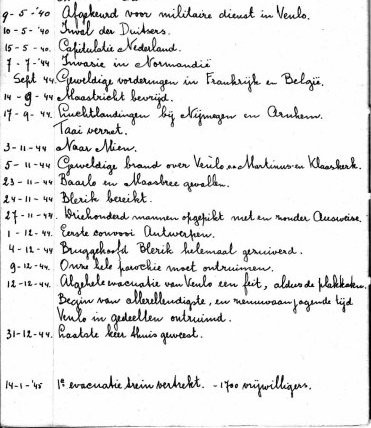 9-5-'40 Afgekeurd voor militaire dienst in Venlo.
10-5-'40 Inval der Duitsers.
15-5-40. Capitulatie Nederland.
7-7-'44 Invasie in Normandië
Sept 44. Geweldige vorderingen in Frankrijk en België.
14-9-44 Maastricht bevrijd.
17-9-44. Luchtlandingen bij Nijmegen en Arnhem.
Taai verzet.
3-11-44 Naar Mien.
5-11-44 Geweldige brand over Venlo en Martinus en Klaaskerk.
23-11-44 Baarlo en Maasbree gevallen.
24-11-44 Blerik bereikt.
27-11-44. Driehonderd mannen opgepikt met en zonder Ausweise.
1-12-44. Eerste convooi Antwerpen.
4-12-44 Bruggehoofd Blerik helemaal gezuiverd.
9-12-44. Onze hele parochie moet ontruimen.
12-12-44. Algehele evacuatie van Venlo een feit, aldus de plakkaten.
Begin van allerellendigste, en zenuwaanjagende tijd
Venlo in gedeelten ontruimd.
31-12-44. Laatste keer thuis geweest.
14-1-'45 1e evacuatie trein vertrekt. -1700 vrijwilligers.